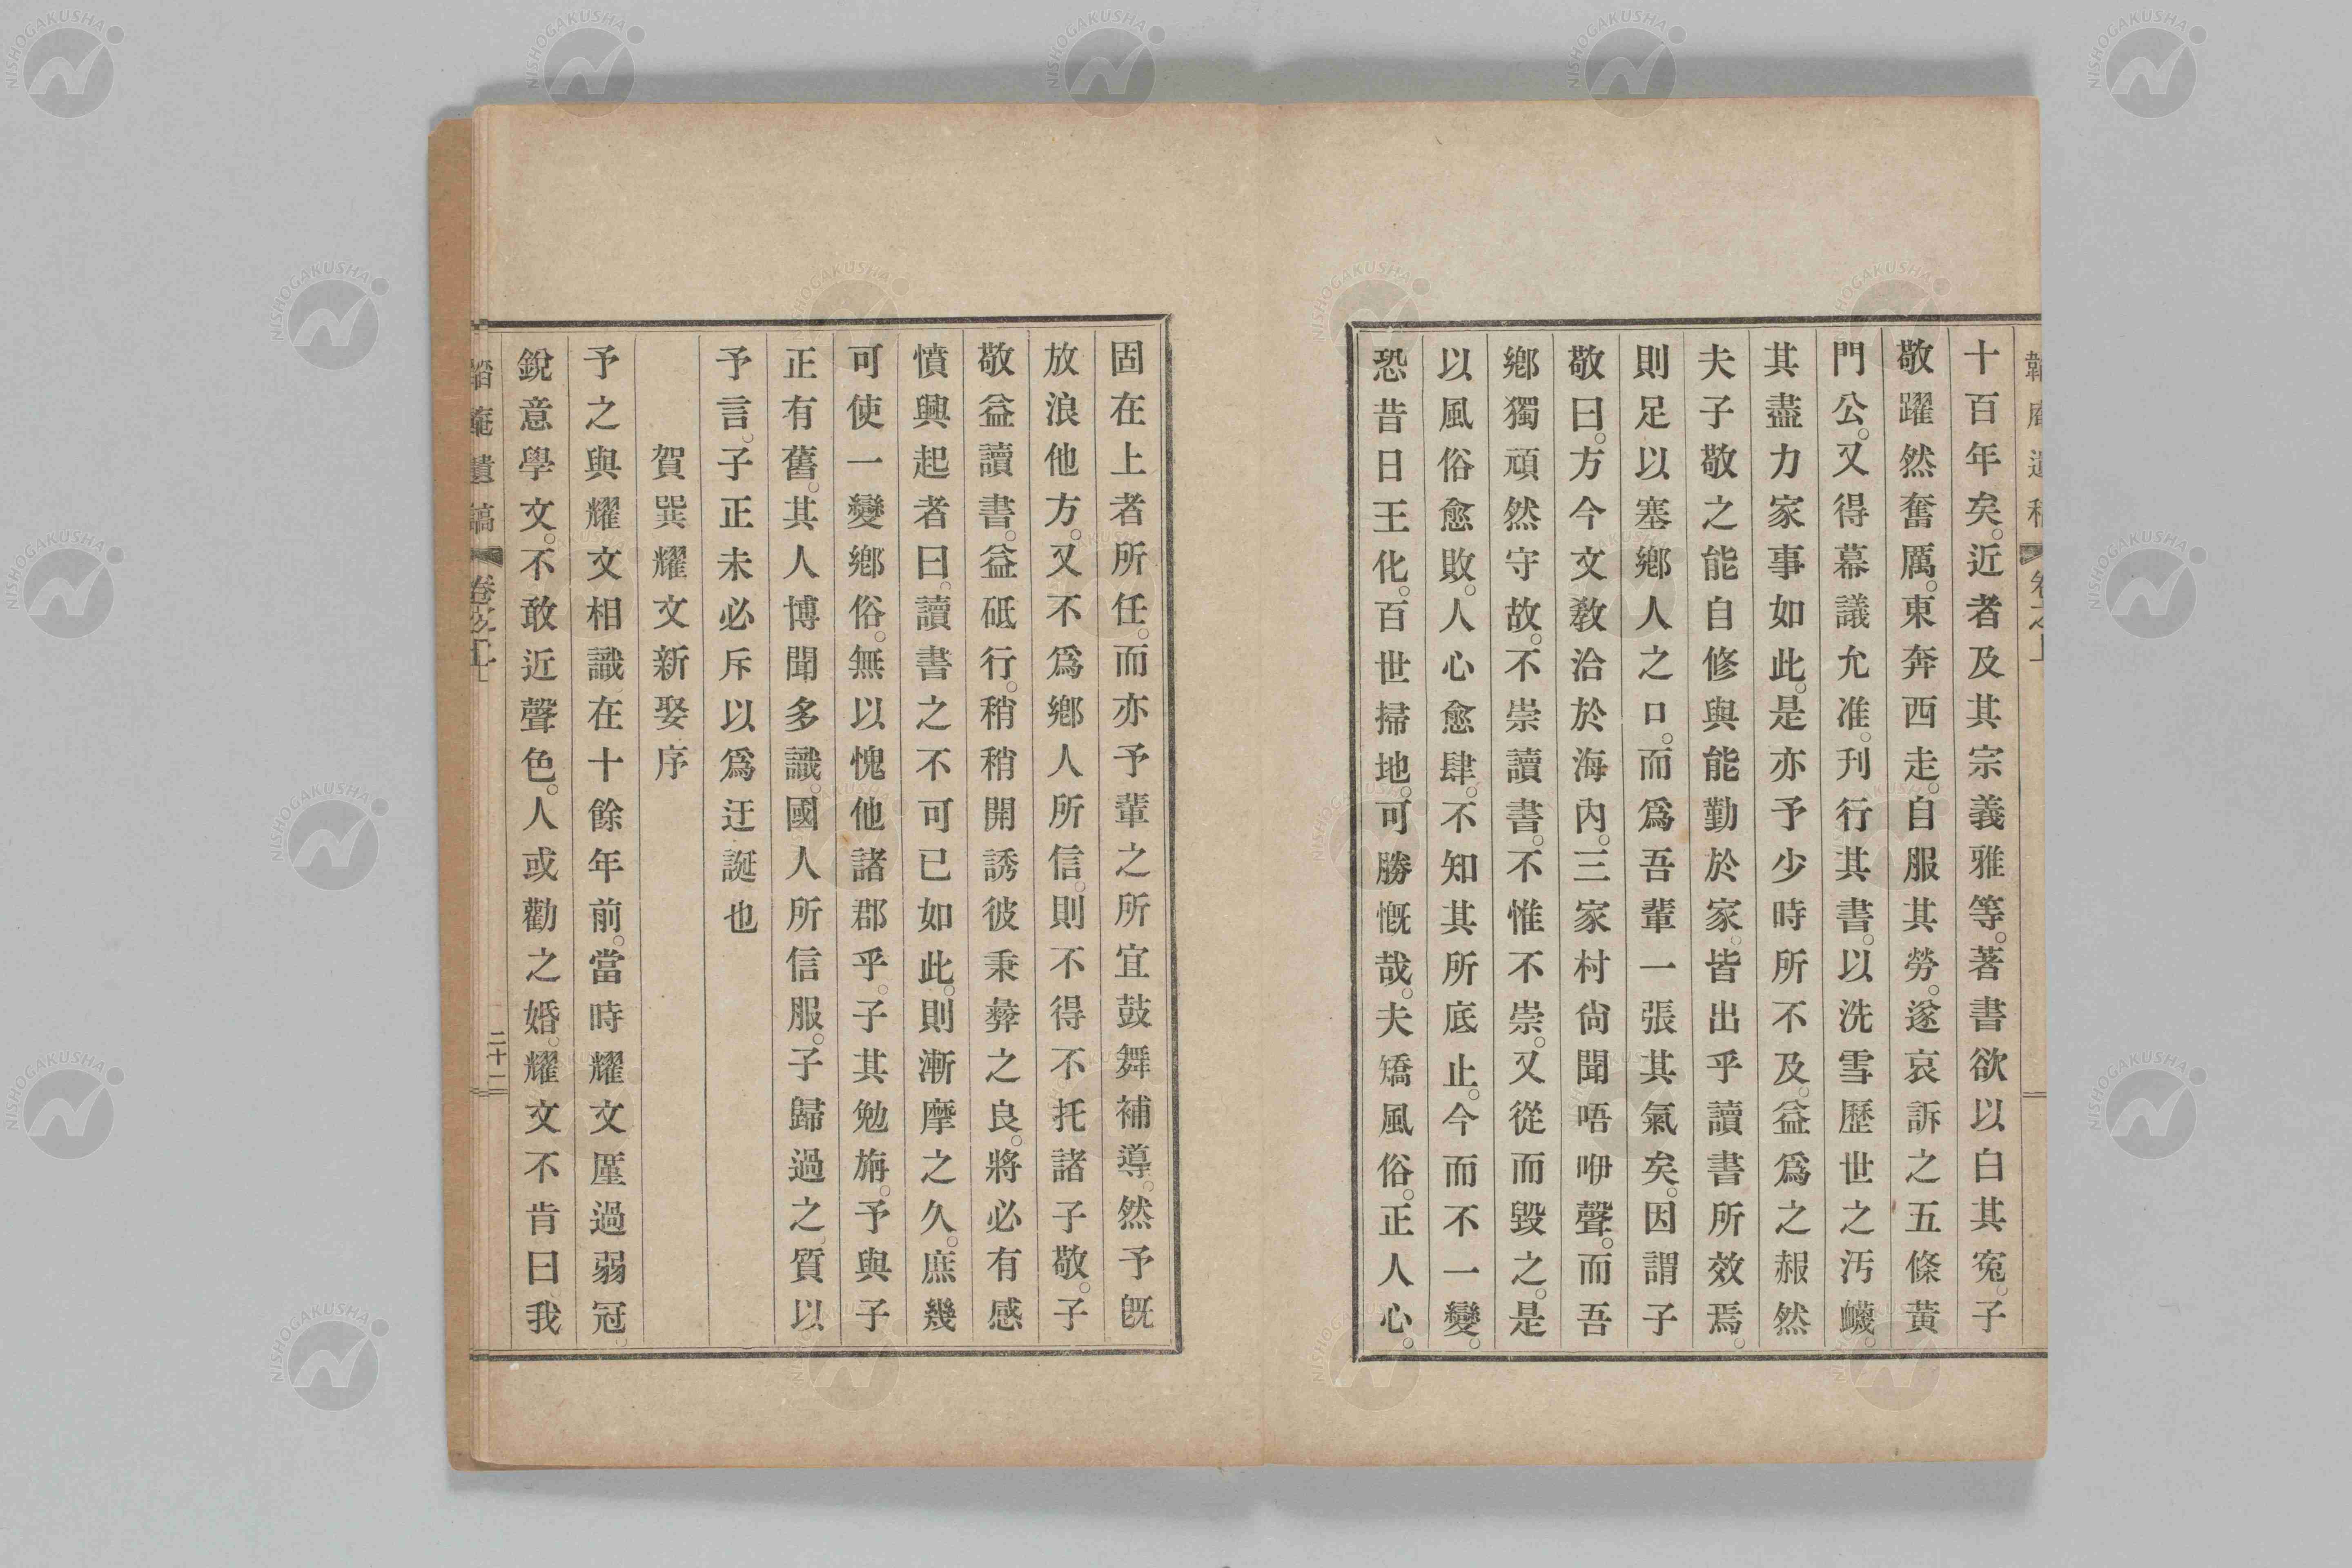 十百年矣。近者及其宗義雅等。著書欲以白其寃。子
敬躍然奮厲。東奔西走。自服其勞。遂哀訴之五條黃
門公。又得幕議允准。刊行其書。以洗雪歷世之汚衊。
其盡力家事如此。是亦予少時所不及。益爲之赧然
夫子敬之能自修與能勤於家。皆出乎讀書所效焉。
則足以塞鄕人之口。而爲吾輩一張其氣矣。因謂子
敬曰。方今文敎洽於海內。三家村尙聞唔咿聲。而吾
鄕獨頑然守故。不崇讀書。不惟不崇。又從而毀之。是
以風俗愈敗。人心愈肆。不知其所底止。今而不一變。
恐昔日王化。百世掃地。可勝慨哉。夫矯風俗。正人心。
固在上者所任。而亦予輩之所宜鼓舞補導。然予旣
放浪他方。又不爲鄕人所信。則不得不托諸子敬。子
敬益讀書。益砥行。稍稍開誘彼秉彝之良。將必有感
憤興起者曰。讀書之不可已如此。則漸摩之久。庶幾
可使一變鄕俗。無以愧他諸郡乎。子其勉旃。予與子
正有舊。其人博聞多識。國人所信服。子歸過之。質以
予言。子正未必斥以爲迂誕也
賀巽耀文新娶序
予之與耀文相識在十餘年前。當時耀文厪過弱冠。
銳意學文。不敢近聲色。人或勸之婚。耀文不肯曰我
二十二
NISHOGAKUSHA